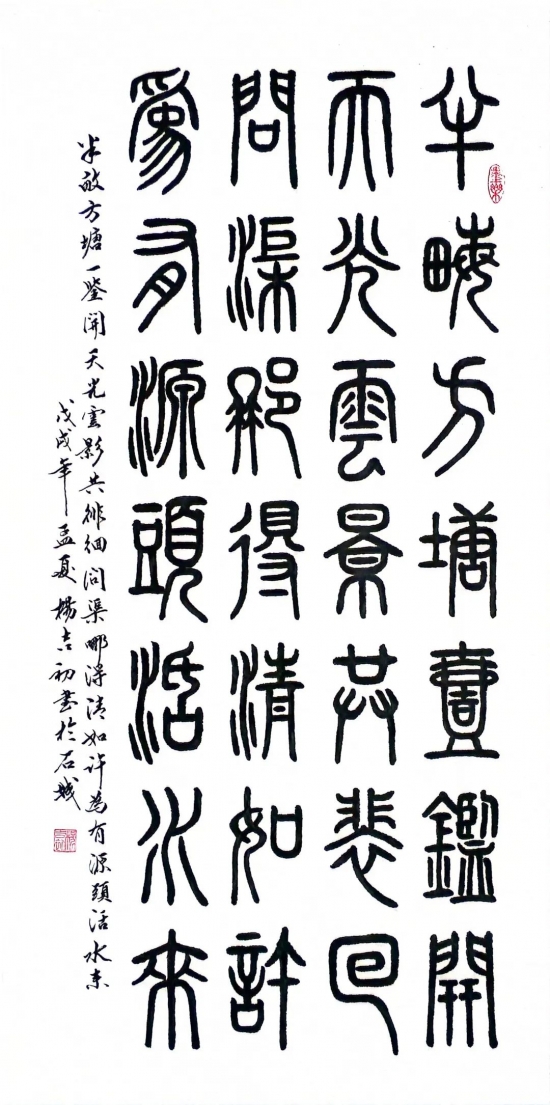 半畮方塘壹鑑開
天光雲景共裴回
問渠那得清如許
爲有源頭活水來
半畝方塘一鑒開天光雲影共徘徊問渠哪得清如許為有源頭活水來
戊戌年孟夏楊吉初書於石城